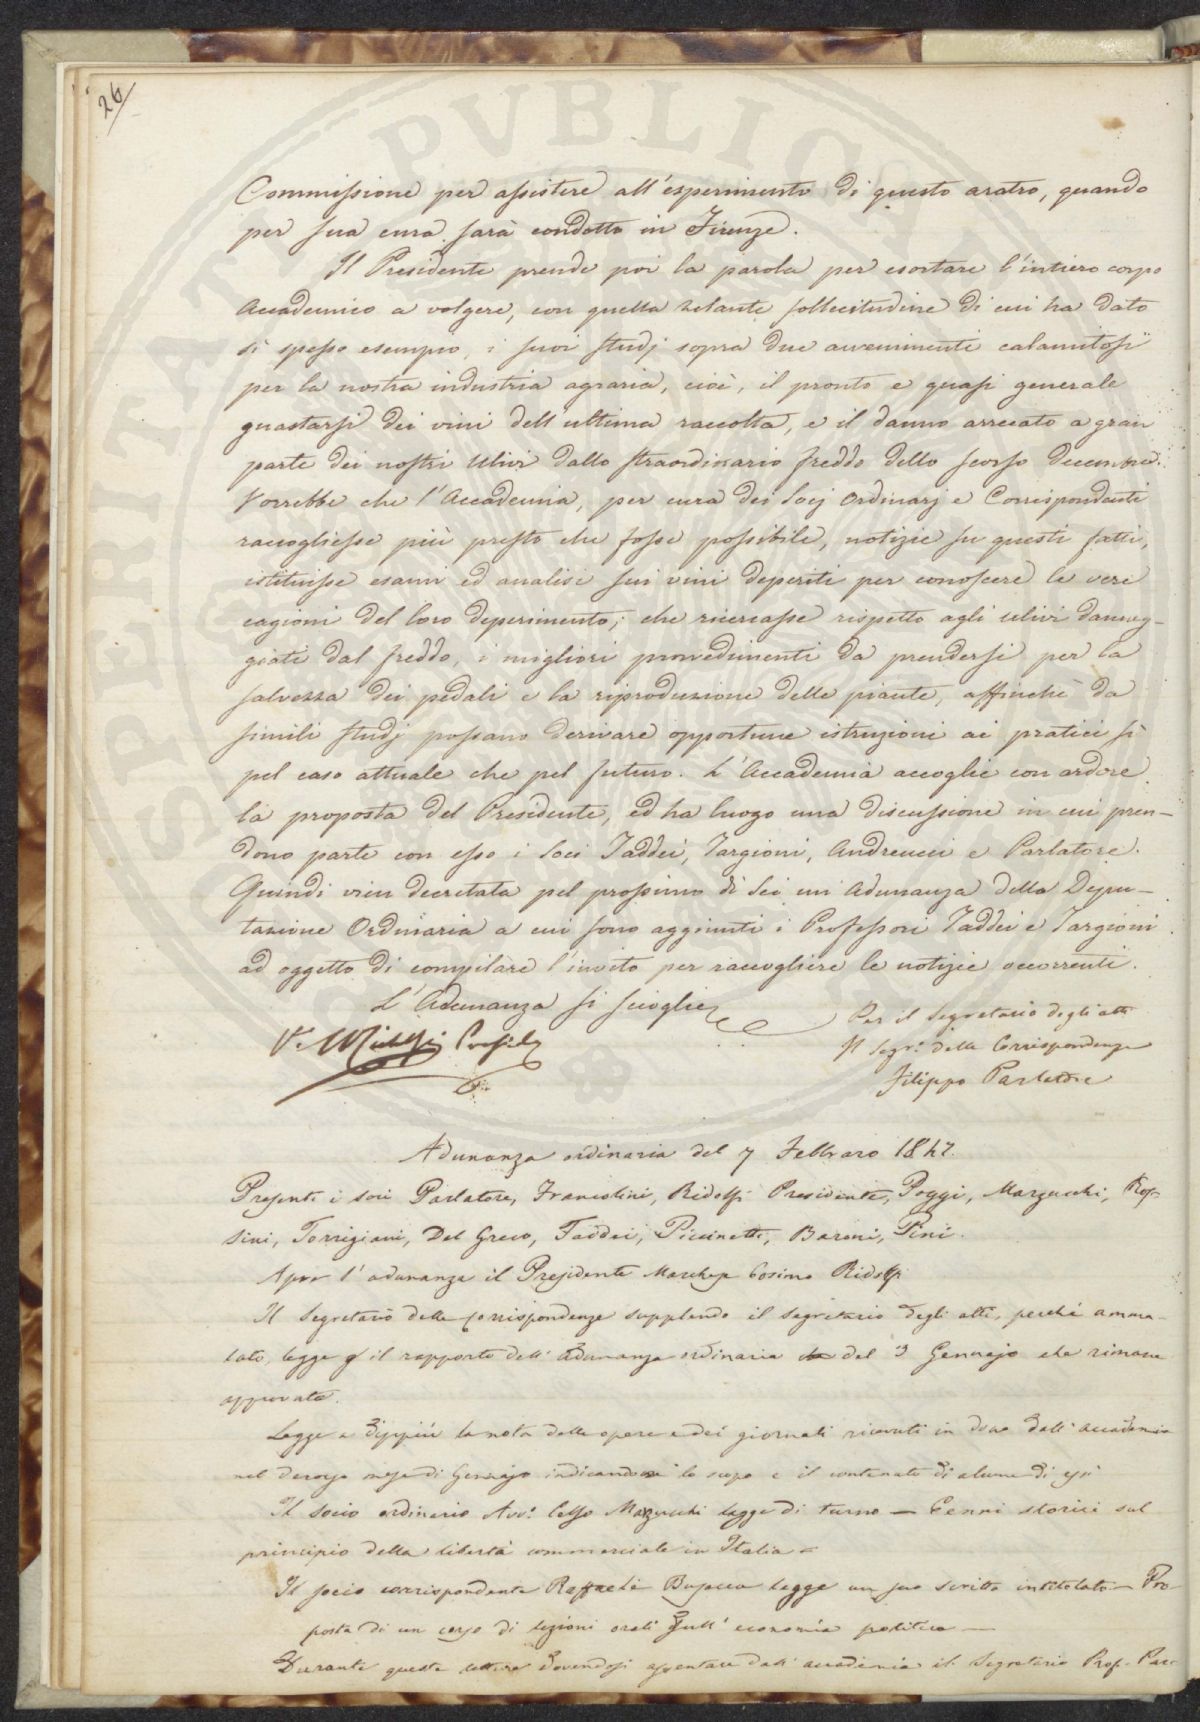 26/
Commissione per assistere all'esperimento di questo aratro, quando
per sua cura sarà condotto in Firenze.
Il Presidente prende poi la parola per esortare l'intiero corpo
Accademico a volgere, con quella zelante sollecitudine di cui ha dato
sì spesso esempio, i suoi studj sopra due avvenimenti calamitosi
per la nostra industria agraria, cioè, il pronto e quasi generale
guastarsi dei vini dell'ultima raccolta, e il danno arrecato a gran
parte dei nostri Ulivi dallo straordinario freddo dello scorso Decembre.
Vorrebbe che l'Accademia, per cura dei Socj Ordinarj e Corrispondenti
raccogliesse più presto che fosse possibile, notizie su questi fatti,
istituisse esami ed analisi sui vini deperiti per conoscere le vere
cagioni del loro deperimento; che ricercasse rispetto agli ulivi danneg-
giati dal freddo, i migliori provvedimenti da prendersi per la
salvezza dei pedali e la riproduzione delle piante, affinchè da
simili studj possano derivare opportune istruzioni ai pratici sì
pel caso attuale che pel futuro. L'Accademia accoglie con ardore
la proposta del Presidente, ed ha luogo una discussione in cui pren-
dono parte con esso i Soci Taddei, Targioni, Andreucci e Parlatore.
Quindi vien decretata pel prossimo dì Sei un'Adunanza della Depu-
tazione Ordinaria a cui sono aggiunti i Professori Taddei e Targioni
ad oggetto di compilare l'invito per raccogliere le notizie occorrenti.
L'Adunanza si scioglie
Per il Segretario degli atti
Il Segr. delle Corrispondenze
Filippo Parlatore
V. Ridolfi Presid.
Adunanza ordinaria del 7 Febbraro 1847.
Presenti i soci Parlatore, Francolini, Ridolfi Presidente, Poggi, Marzucchi, Ros-
sini, Torrigiani, Del Greco, Taddei, Piccinetti, Baroni, Pini.
Apre l'adunanza il Presidente Marchese Cosimo Ridolfi
Il Segretario delle Corrispondenze supplendo il segretario degli atti, perchè amma-
lato, legge il rapporto dell'adunanza ordinaria del 3 Gennajo che rimane
approvato.
Legge a dippiù la nota delle opere e dei giornali ricevuti in dono dall'accademia
nel decorso mese di Gennajo indicandone lo scopo e il contenuto di alcune di essi
Il socio ordinario Avv. Celso Marzucchi legge di turno — Cenni storici sul
principio della libertà commerciale in Italia —
Il socio corrispondente Raffaele Busacca legge un suo scritto intitolato — Pro-
posta di un corso di lezioni orali sull'economia politica —
Durante queste letture dovendosi assentare dall'accademia il Segretario Prof. Par-
PVBLICAE
PROSPERITATI